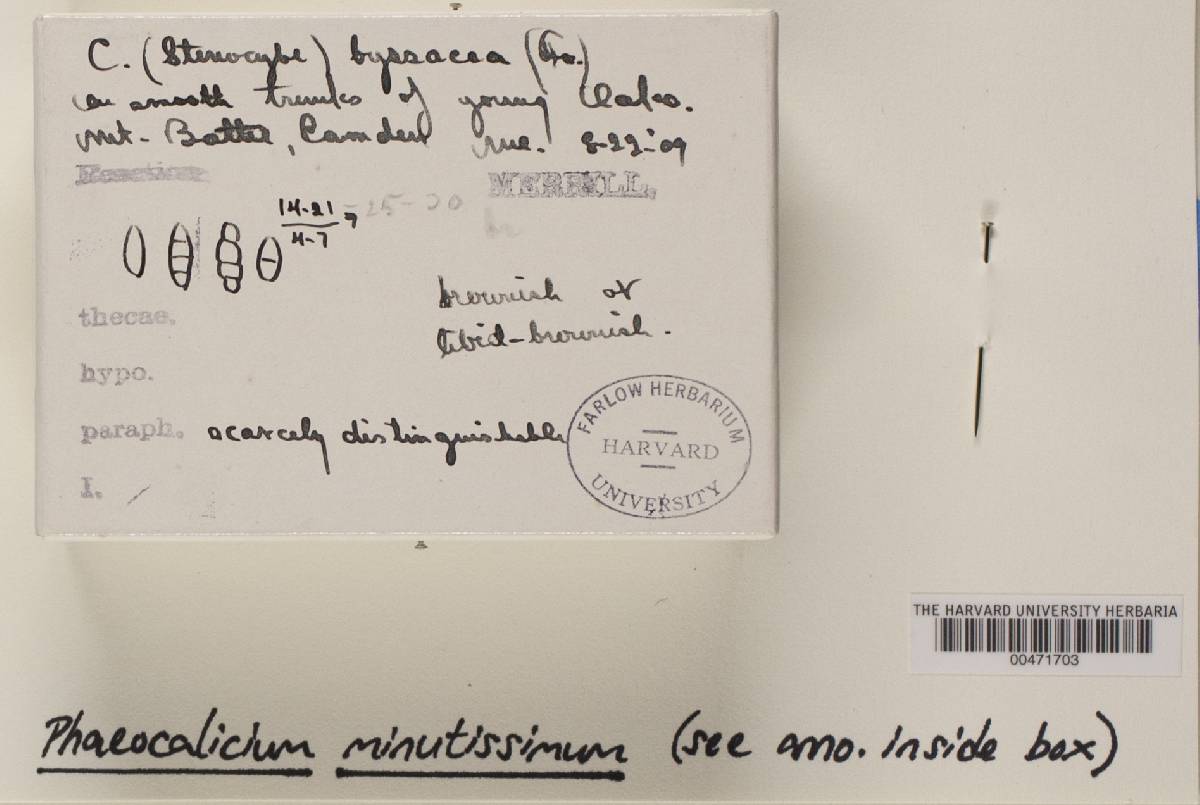 C. (Stenocybe) byssacea (Fr.)
on smooth trunks of young Oaks.
Mt. Battie, Camden Me. 8-22-'09
Reaction
MERRILL.
14-21
4-7
25-20
brownish or
livid-brownish.
thecae.
hypo.
paraph. scarcely distinguishable
I. /
FARLOW HERBARIUM
HARVARD
UNIVERSITY
THE HARVARD UNIVERSITY HERBARIA
00471703
Phaeocalicium minutissimum (see ano. inside box)